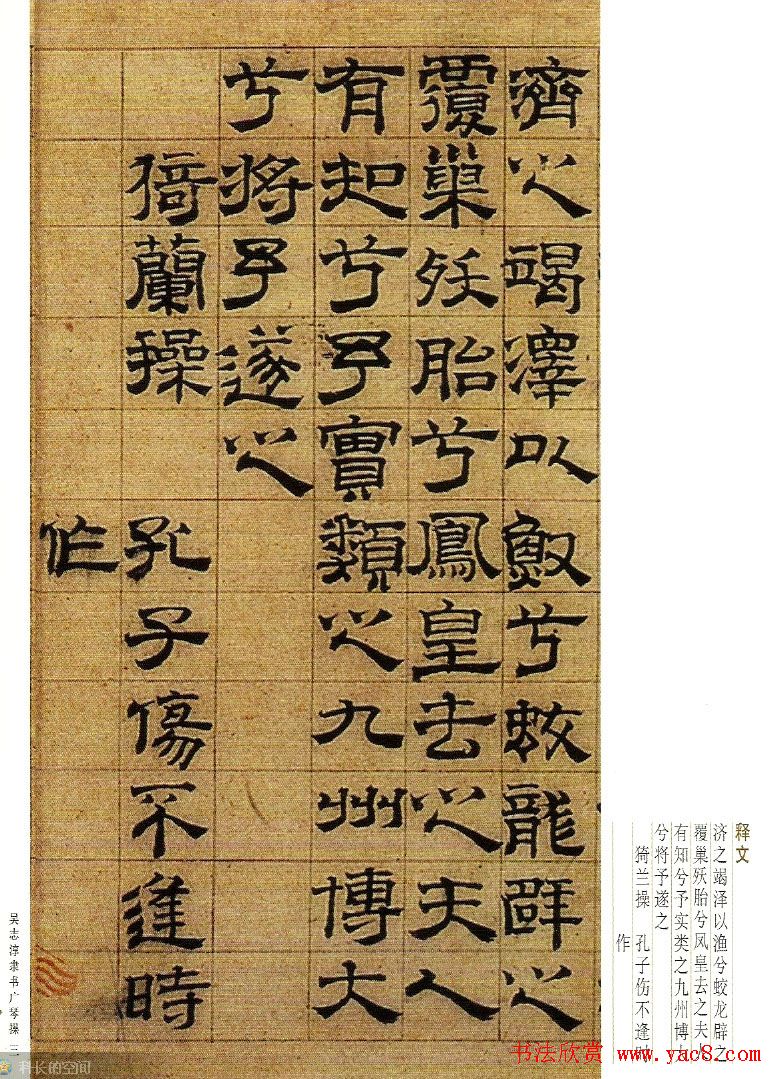 濟之竭澤以漁兮蛟龍辟之
覆巢殀胎兮鳳皇去之夫人
有知兮予實類之九州博大
兮將予遂之
猗蘭操 孔子傷不逢時
作
释文
济之竭泽以渔兮蛟龙辟之
覆巢殀胎兮凤皇去之夫
有知兮予实类之九州博
兮将予遂之
猗兰操 孔子伤不逢
作
吴志淳隶书广琴操 三
科长的空间
书法欣赏 www.yac8.com